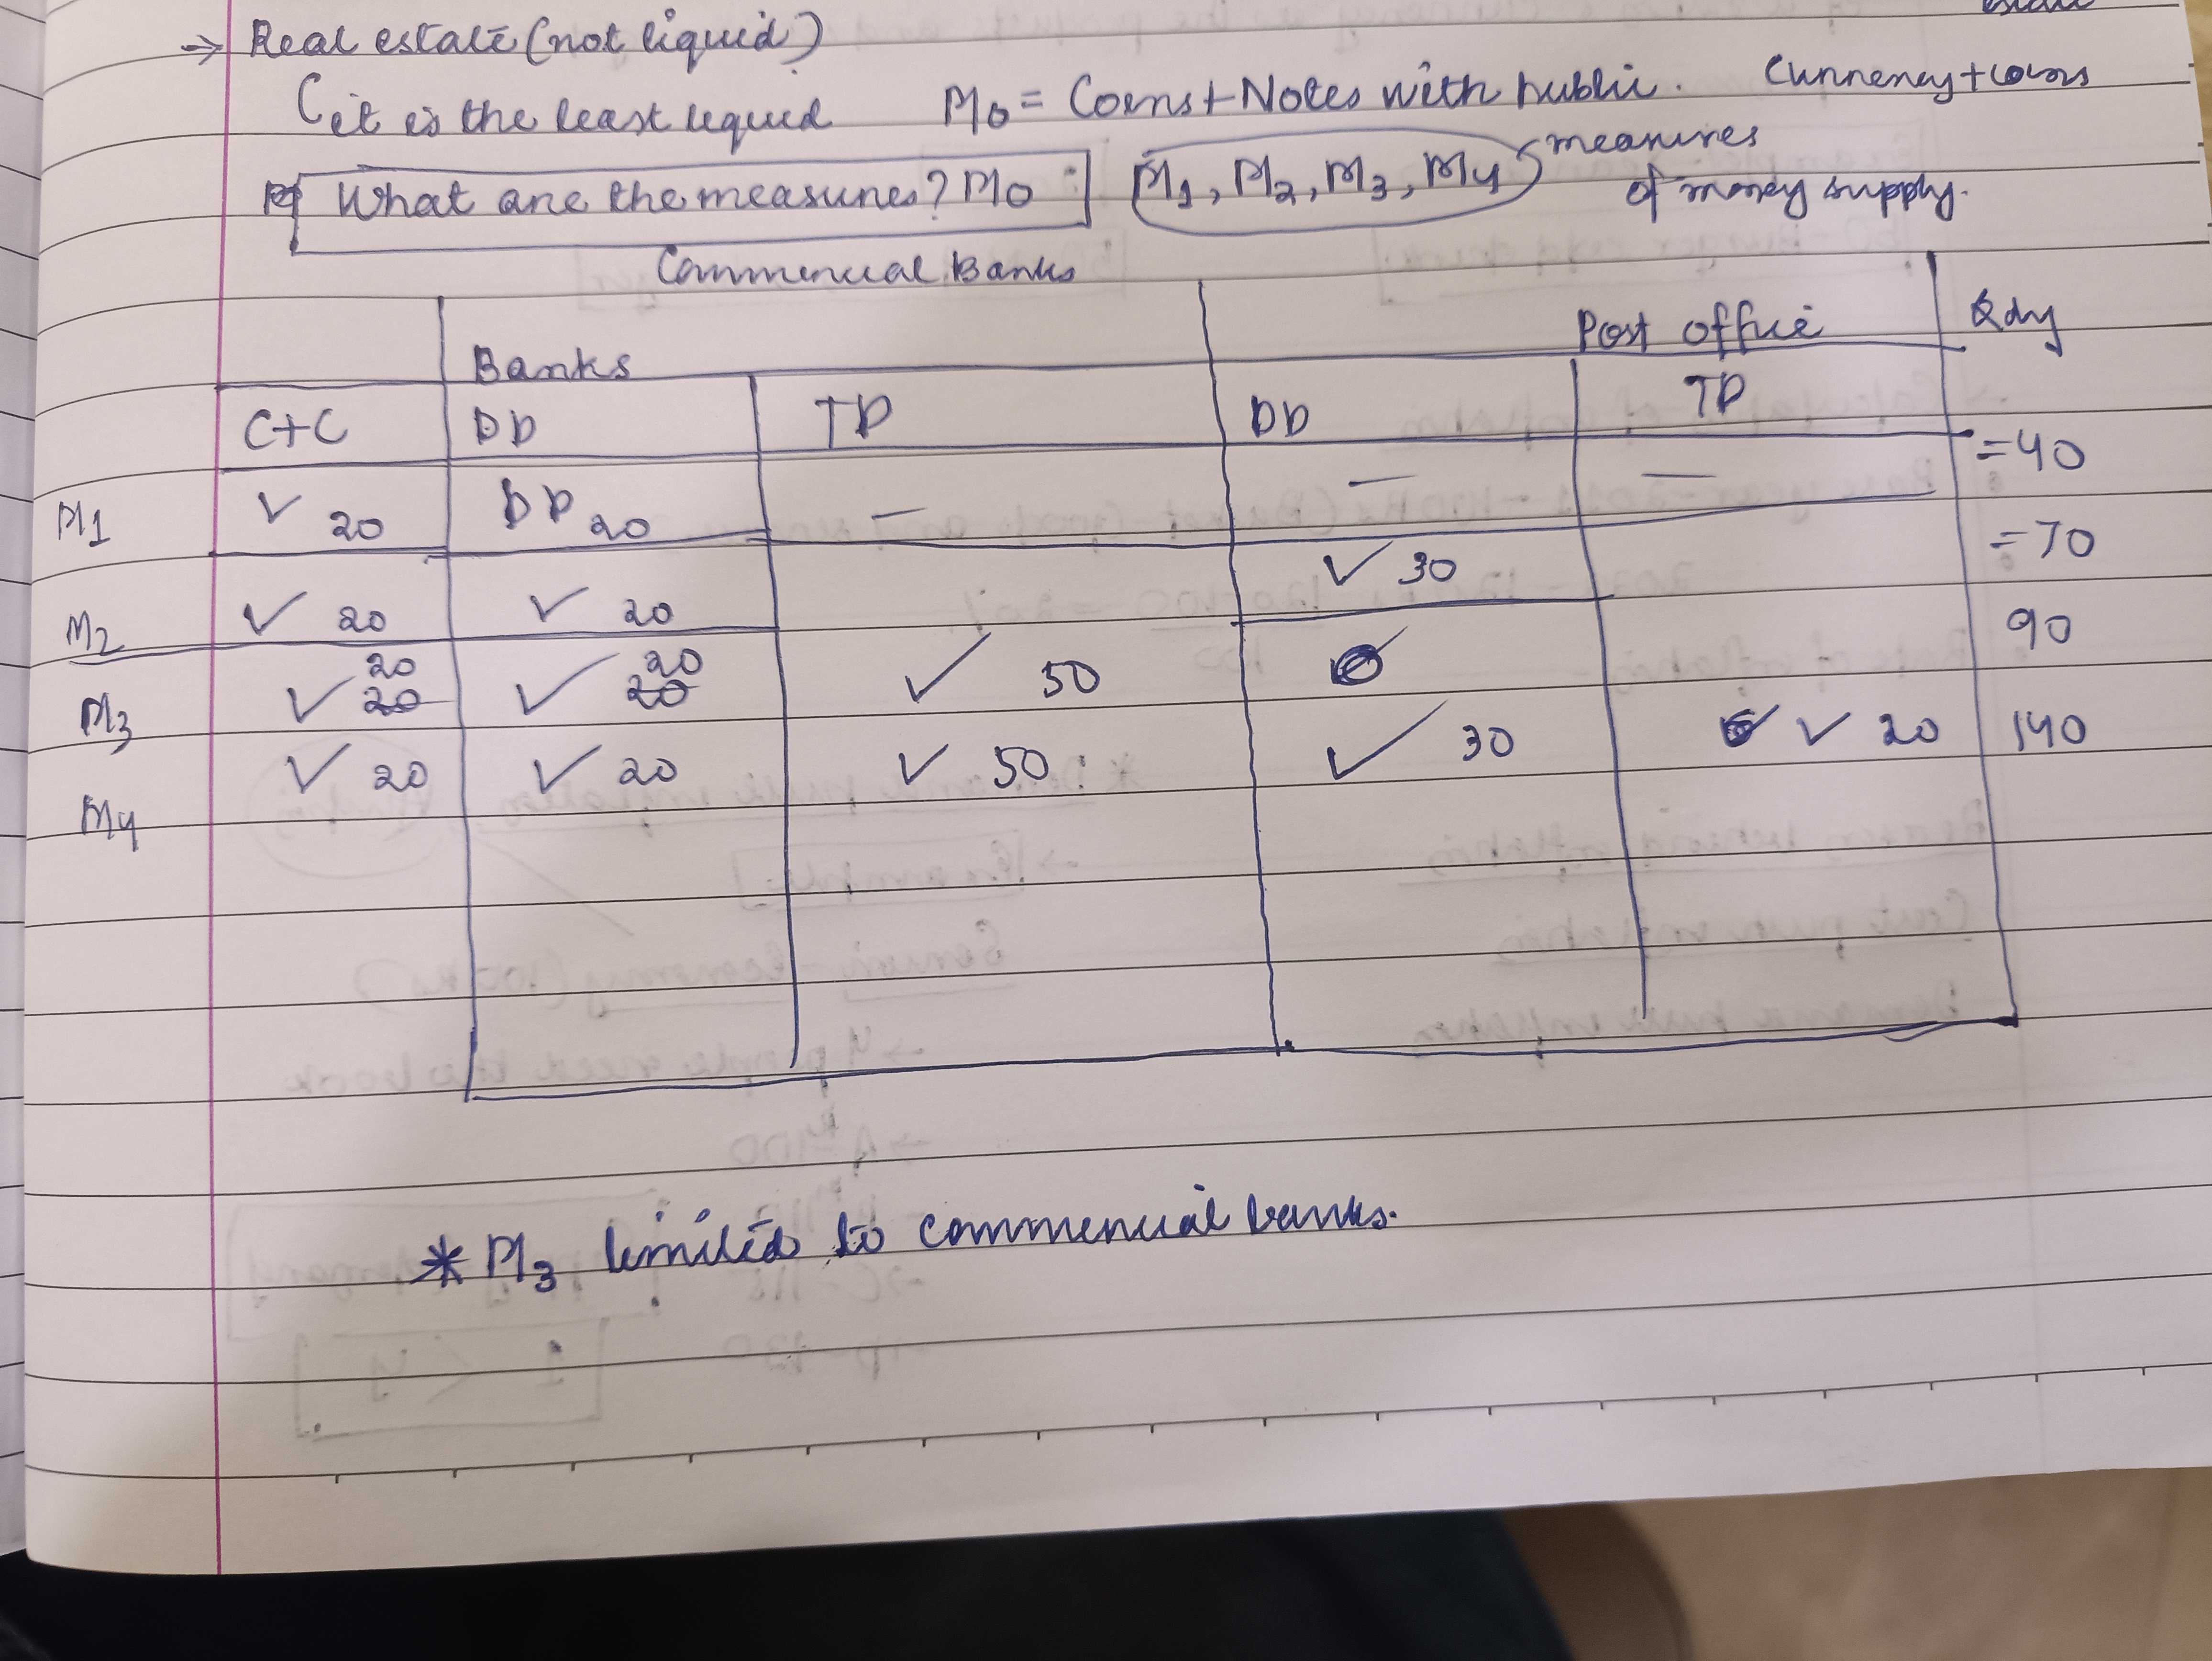 → Real estate (not liquid)
it is the least liquid M0 = Coins + Notes with public. Currency + coins
What are the measures? M0 : M1, M2, M3, M4 measures
of money supply.
Commercial Banks
Banks Post office
C+C DD TD DD TD
M1 ✓ 20 DD 20 — — — = 40
M2 ✓ 20 ✓ 20 ✓ 30 = 70
M3 ✓ 20 20 ✓ 20 20 ✓ 50 90
M4 ✓ 20 ✓ 20 ✓ 50 ✓ 30 ✓ 20 140
* M3 limited to commercial banks.